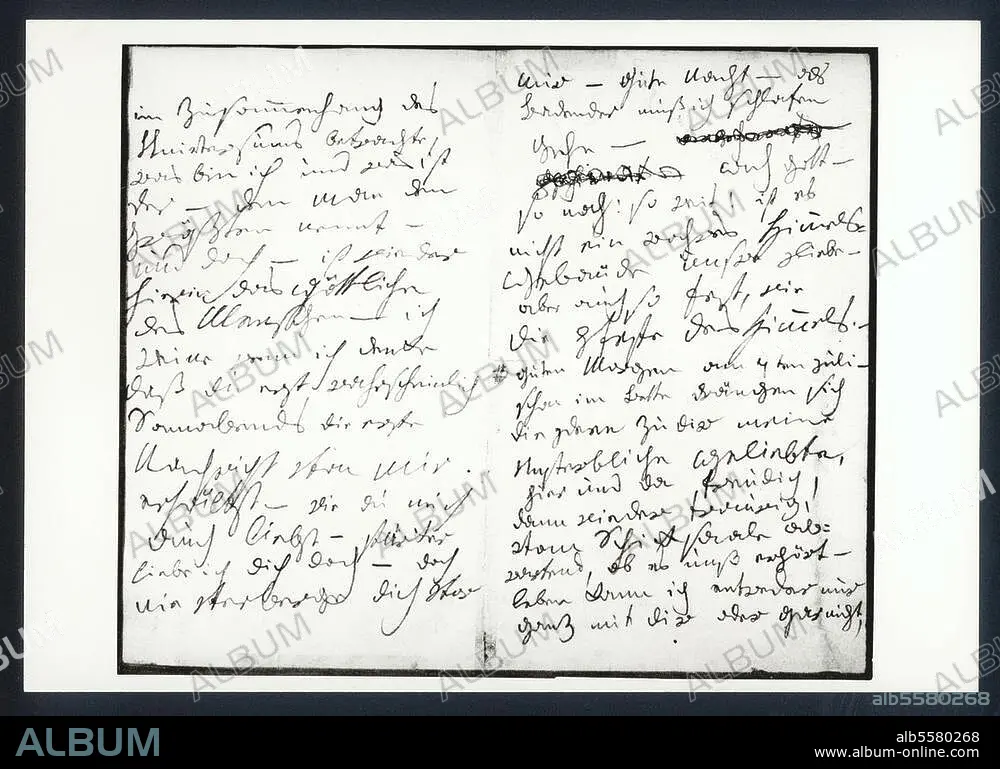 im Zusammenhang des
Universums betrachte,
was bin ich und was ist
der — den man den
Größten nennt —
und doch — ist wieder
hierin das Göttliche
des Menschen — ich
weine wenn ich denke
daß du erst wahrscheinlich
Sonnabends die erste
Nachricht von mir
erhältst — wie du mich
auch liebst — stärker
liebe ich dich doch — doch
nie verberge dich vor
mir — gute Nacht — als
Badender muß ich schlafen
gehn —
ach gott —
so nah! so weit! ist es
nicht ein wahres Himmels-
Gebäude unsre Liebe —
aber auch so fest, wie
die Veste des Himmels. —
guten Morgen am 7ten Juli —
schon im Bette drängen sich
die Ideen zu dir meine
Unsterbliche Geliebte,
hier und da freudig,
dann wieder traurig,
vom Schicksaale ab=
wartend, ob es unß erhört —
leben kann ich entweder nur
ganz mit dir oder gar nicht,
ALBUM
alb5580268
ALBUM
alb5580268
www.album-online.com